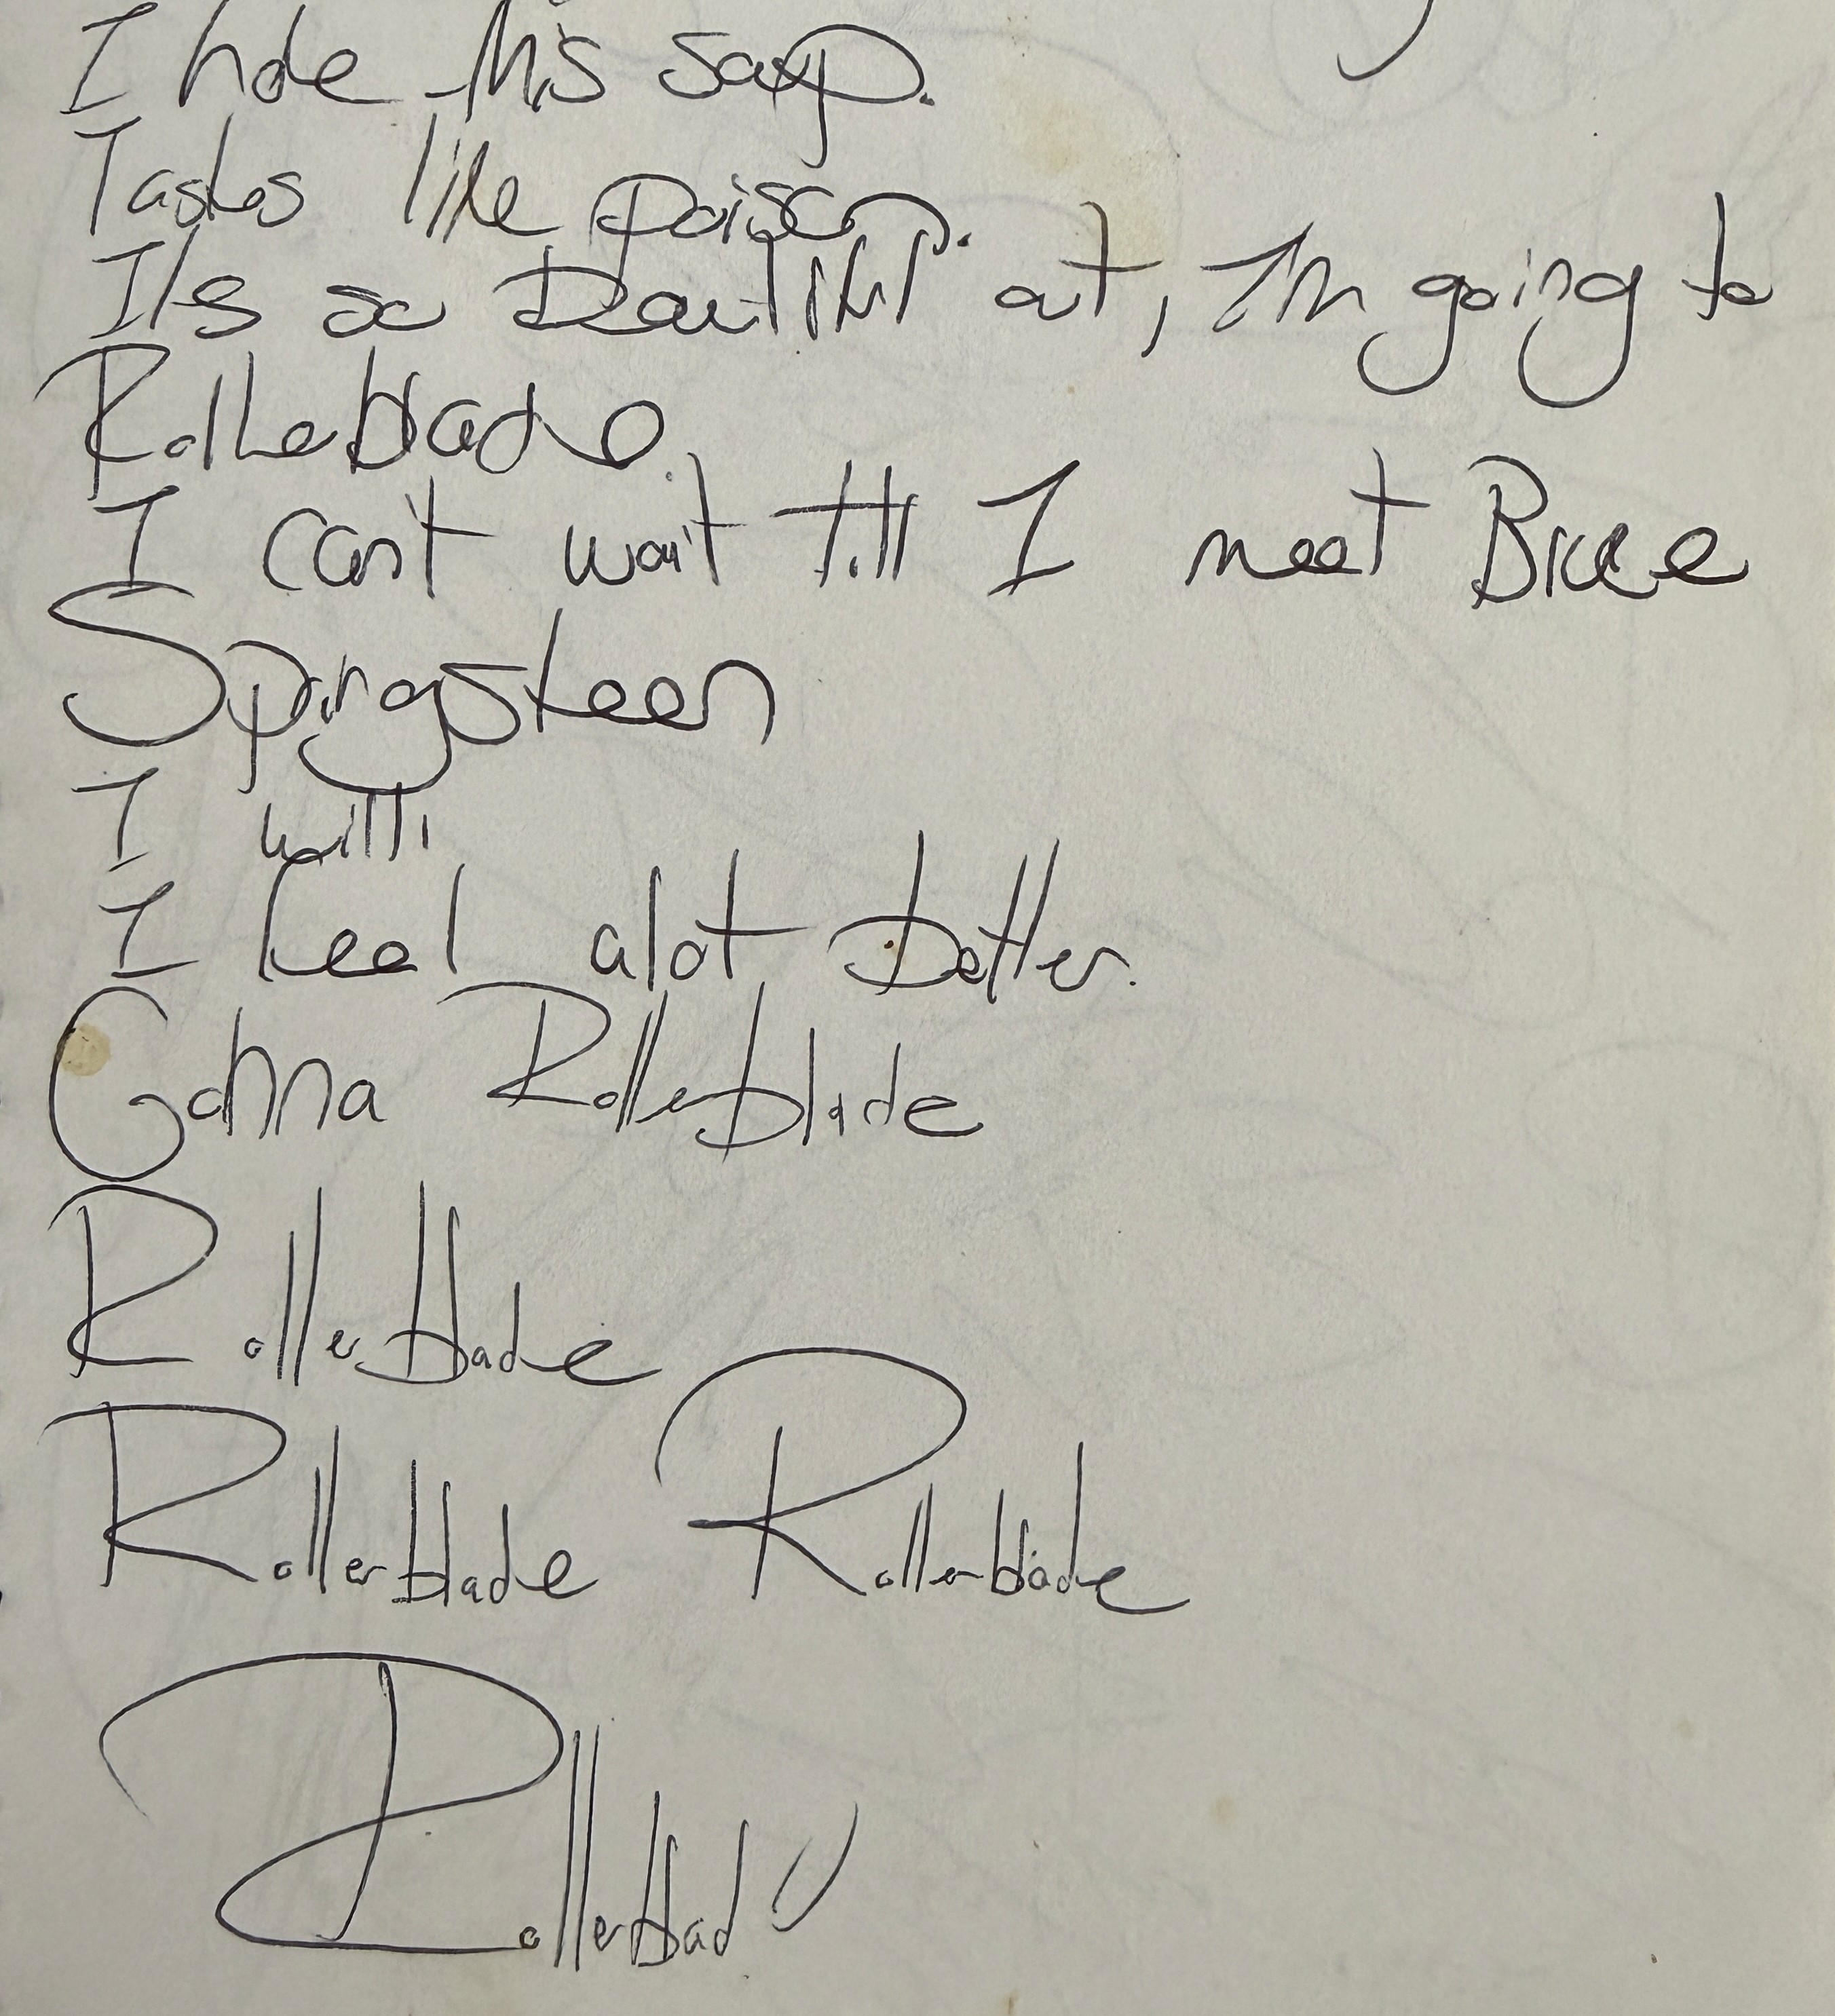 I hate this soup.
Tastes like poison.
It's so beautiful out, I'm going to
Rollerblade.
I can't wait till I meet Bruce
Springsteen
I will
I feel alot better.
Gonna Rollerblade
Rollerblade
Rollerblade Rollerblade
Rollerblade